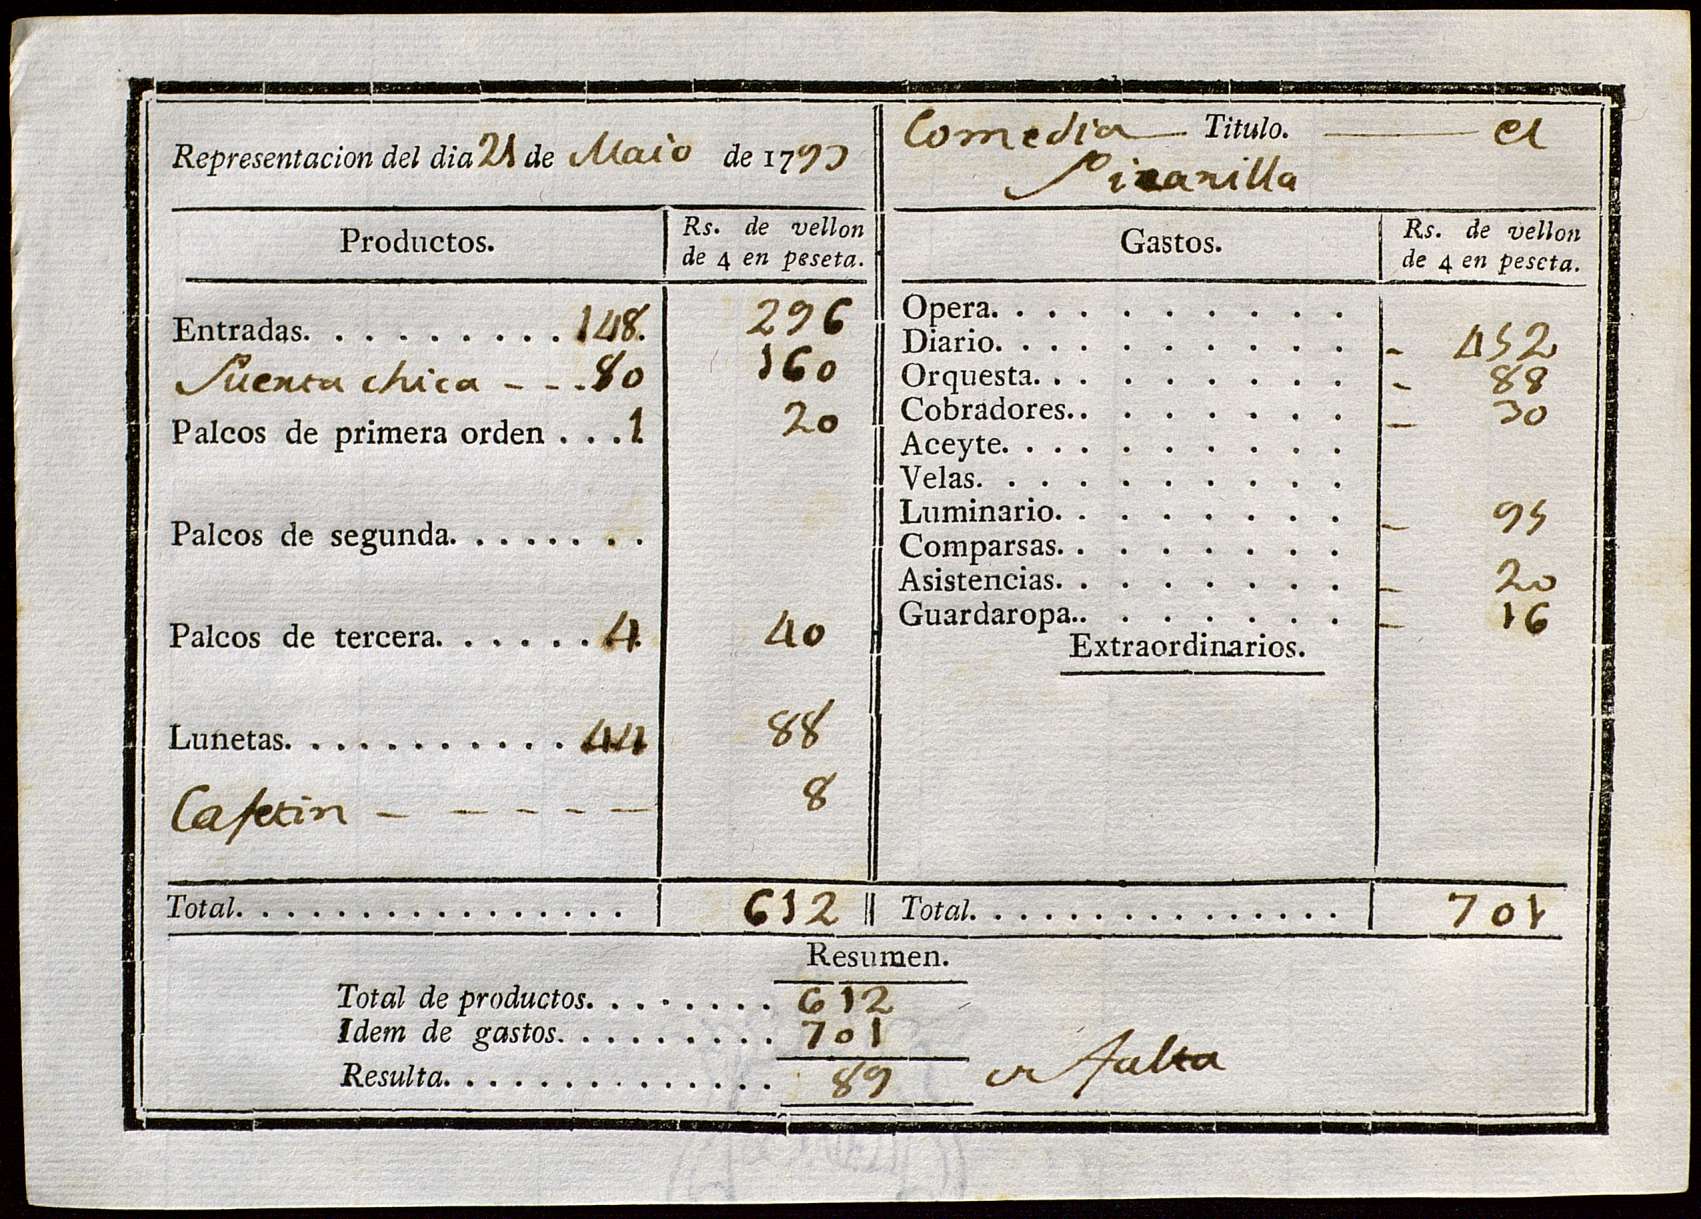 Representacion del dia 21 de Maio de 1793
Comedia Titulo. el
Productos.
Rs. de vellon
de 4 en peseta.
Entradas. . . . . . . . . 148. 296
Puerta chica - - - 80 160
Palcos de primera orden . . . 1 20
Palcos de segunda. . . . . . . .
Palcos de tercera. . . . . . 4. 40
Lunetas. . . . . . . . . . . 44 88
Cafetin - - - - - - 8
Total. . . . . . . . . . . . . . . . 612
Gastos.
Rs. de vellon
de 4 en peseta.
Opera. . . . . . . . . .
Diario. . . . . . . . . . - 452
Orquesta. . . . . . . . . - 88
Cobradores.. . . . . . . - 30
Aceyte. . . . . . . . . .
Velas. . . . . . . . . .
Luminario. . . . . . . . - 95
Comparsas. . . . . . . .
Asistencias. . . . . . . . - 20
Guardaropa.. . . . . . . - 16
Extraordinarios.
Total. . . . . . . . . . . . . . . 701
Resumen.
Total de productos. . . . . . . . 612
Idem de gastos. . . . . . . . . 701
Resulta. . . . . . . . . . . . . . 89 en falta